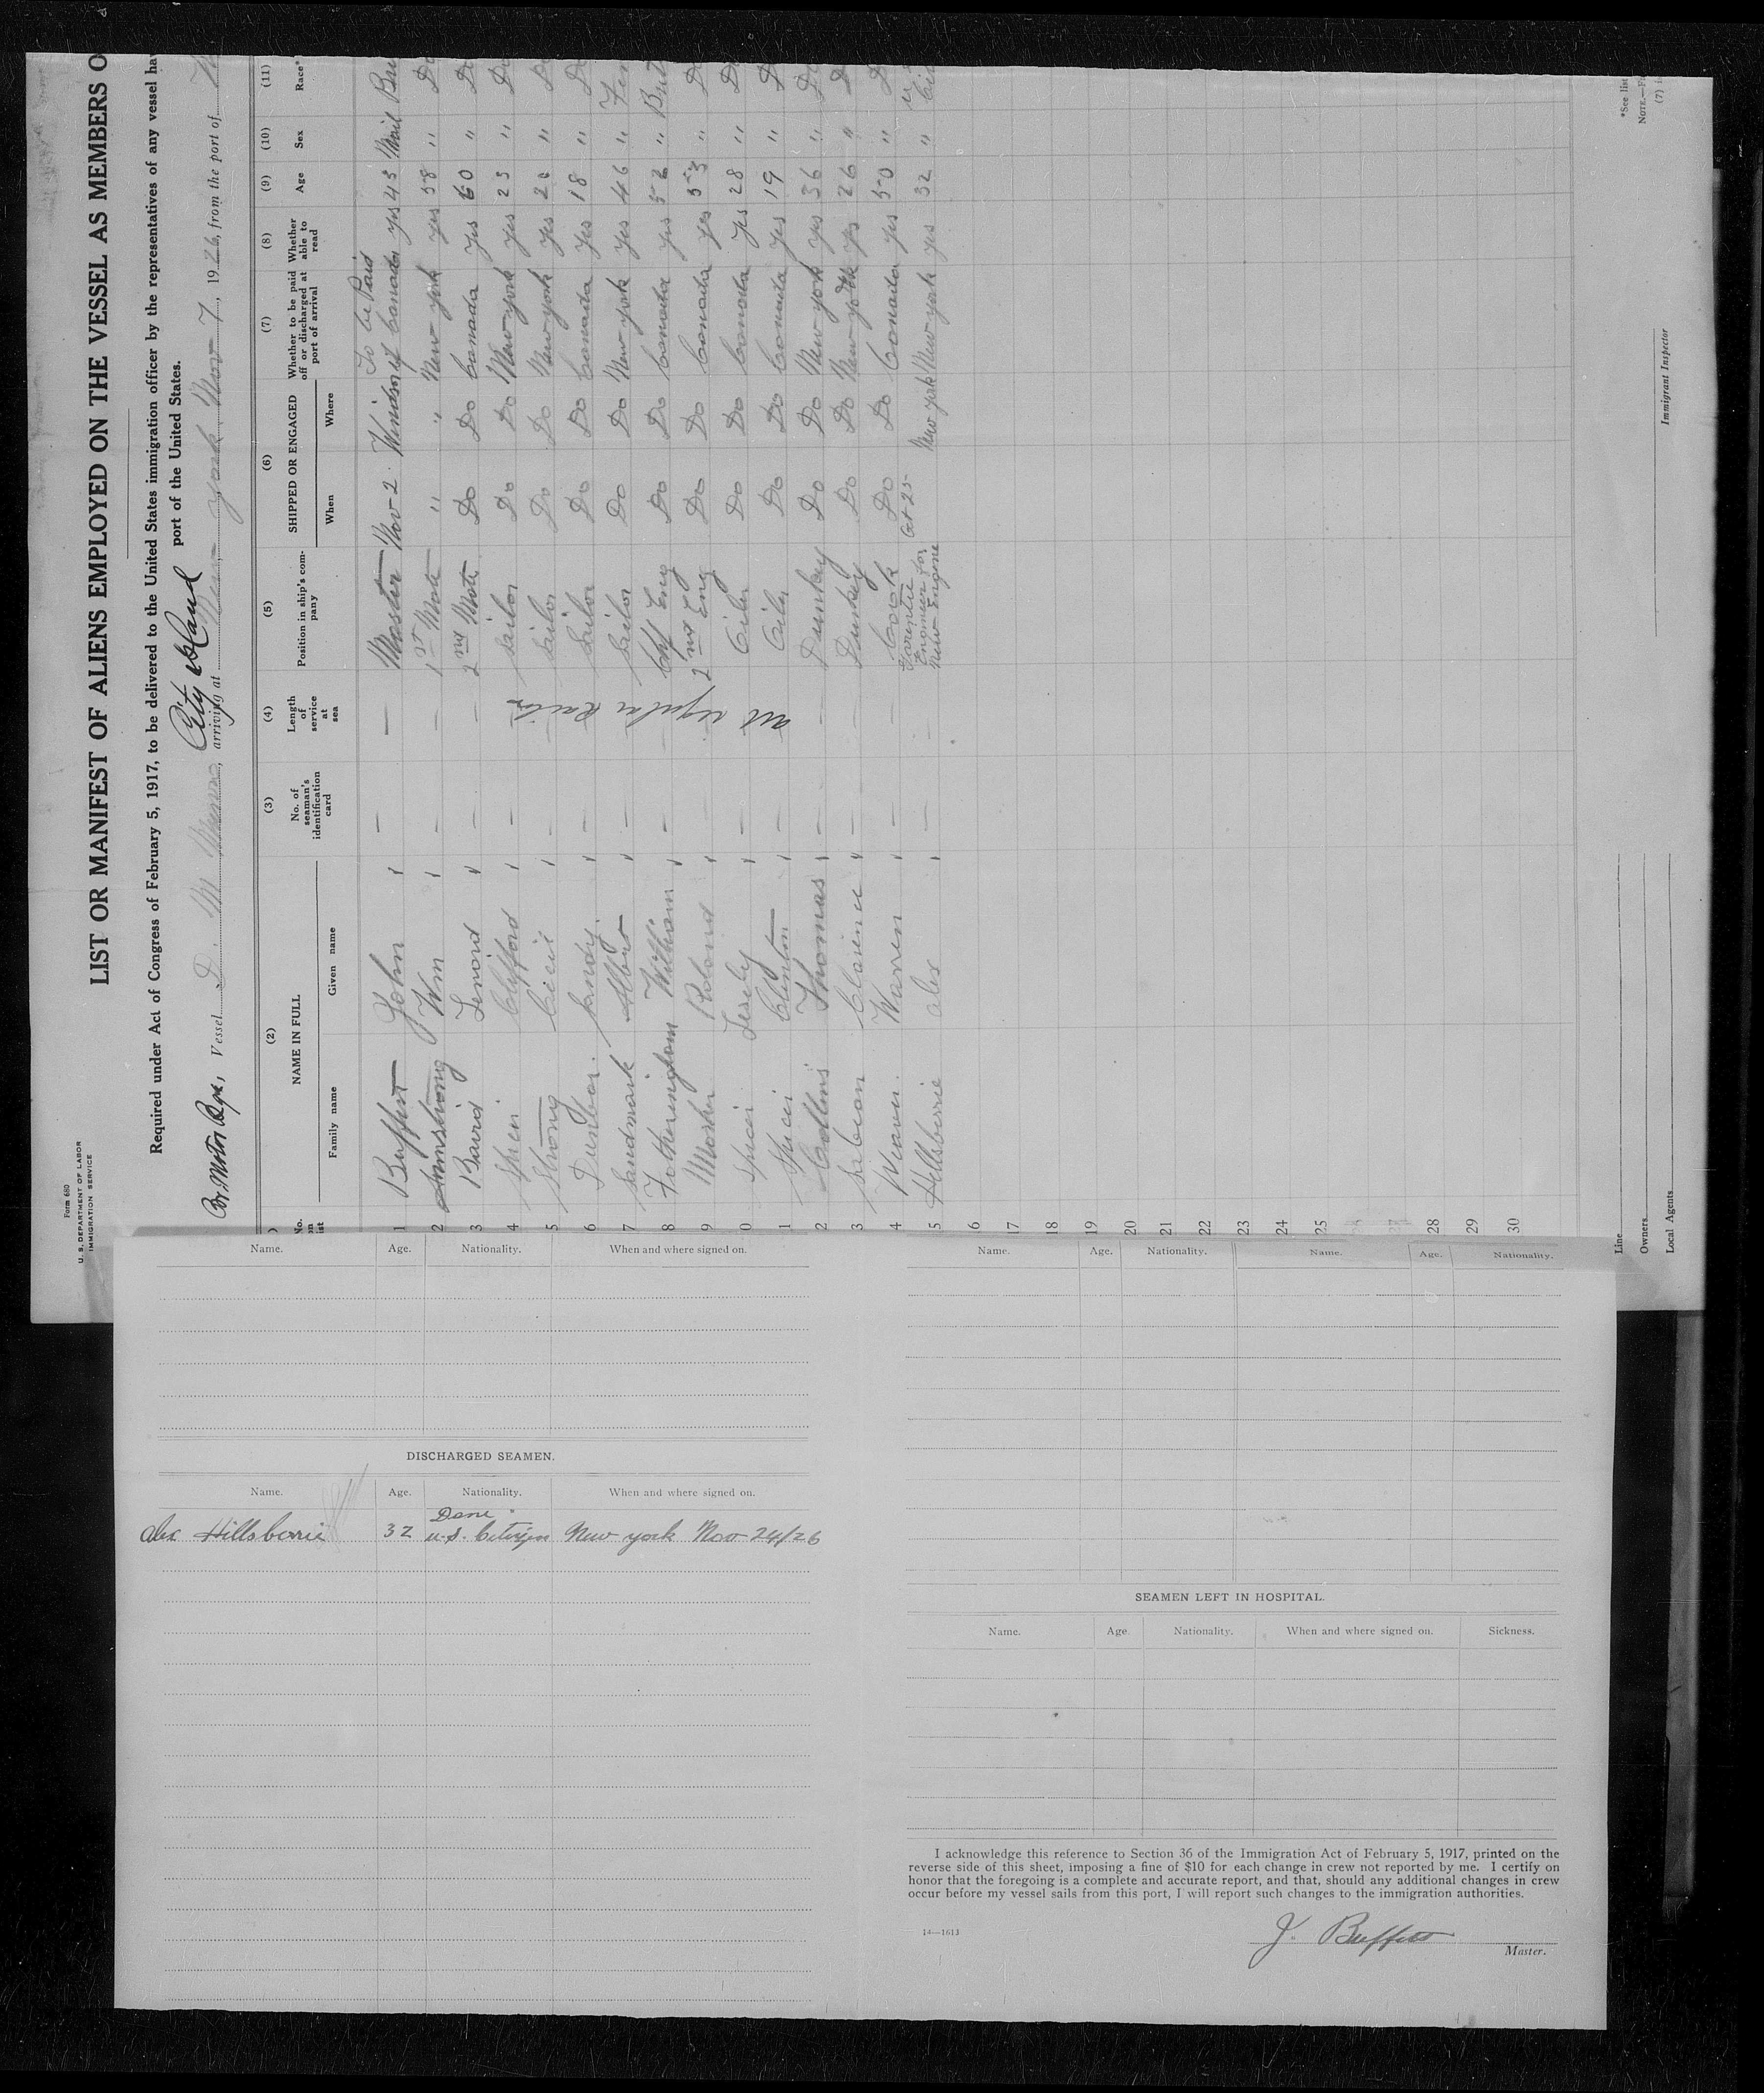 Form 680
U. S. DEPARTMENT OF LABOR
IMMIGRATION SERVICE
LIST OR MANIFEST OF ALIENS EMPLOYED ON THE VESSEL AS MEMBERS O
Required under Act of Congress of February 5, 1917, to be delivered to the United States immigration officer by the representatives of any vessel hav
port of the United States.
Vessel D. M. City Island arriving at New York Nov 7, 1926, from the port of
(2) (3) (4) (5) (6) (7) (8) (9) (10) (11)
No. on list NAME IN FULL No. of seaman's identification card Length of service at sea Position in ship's company SHIPPED OR ENGAGED Whether to be paid off or discharged at port of arrival Whether able to read Age Sex Race*
Family name Given name When Where
To be Paid
1 Buffett John — — Master Nov 2 Windsor if Canada yes 43 Mail
2 Armstrong Wm — — 1st Mate " " New York yes 58 "
3 Baird Lenord — — 2nd Mate Do Do Canada yes 60 "
4 Spicer Clifford — Sailor Do Do New York yes 23 " Do
5 Strong Cicil — Sailor Do Do New York yes "
6 Dunbar Sandy — Sailor Do Do Canada yes 18 "
7 Sandmark Albert — Sailor Do Do New York yes 46 "
8 Fotheringham William — Chf Eng Do Do Canada yes 52 "
9 Mosher Roland 2nd Eng Do Do Canada yes 53 "
0 Spicer Lesely — Oiler Do Do Canada yes 28 "
1 Spicer Clinton — Oiler Do Do Canada yes 19 "
2 Collins Thomas — — Dunkey Do Do New York yes 36 "
3 Sabean Clarence — Dunkey Do Do New York yes 26 "
4 Warren — — Cook Do Do Canada yes 50 "
5 Hillsberrie Alex — — Garentie Engineer for New Engine Oct 25 New York New York yes 32 "
6
17
18
19
20
21
22
23
24
25
26
27
28
29
30
Line
Owners
Local Agents
Immigrant Inspector
*See list
NOTE.—
(7) i
Name. Age. Nationality. When and where signed on.
DISCHARGED SEAMEN.
Name. Age. Nationality. When and where signed on.
Dane
Alex Hillsborrie 32 U.S. Citizen New York Nov 24/26
Name. Age. Nationality. Name. Age. Nationality.
SEAMEN LEFT IN HOSPITAL.
Name. Age. Nationality. When and where signed on. Sickness.
I acknowledge this reference to Section 36 of the Immigration Act of February 5, 1917, printed on the
reverse side of this sheet, imposing a fine of $10 for each change in crew not reported by me. I certify on
honor that the foregoing is a complete and accurate report, and that, should any additional changes in crew
occur before my vessel sails from this port, I will report such changes to the immigration authorities.
14—1613
J. Buffett
Master.